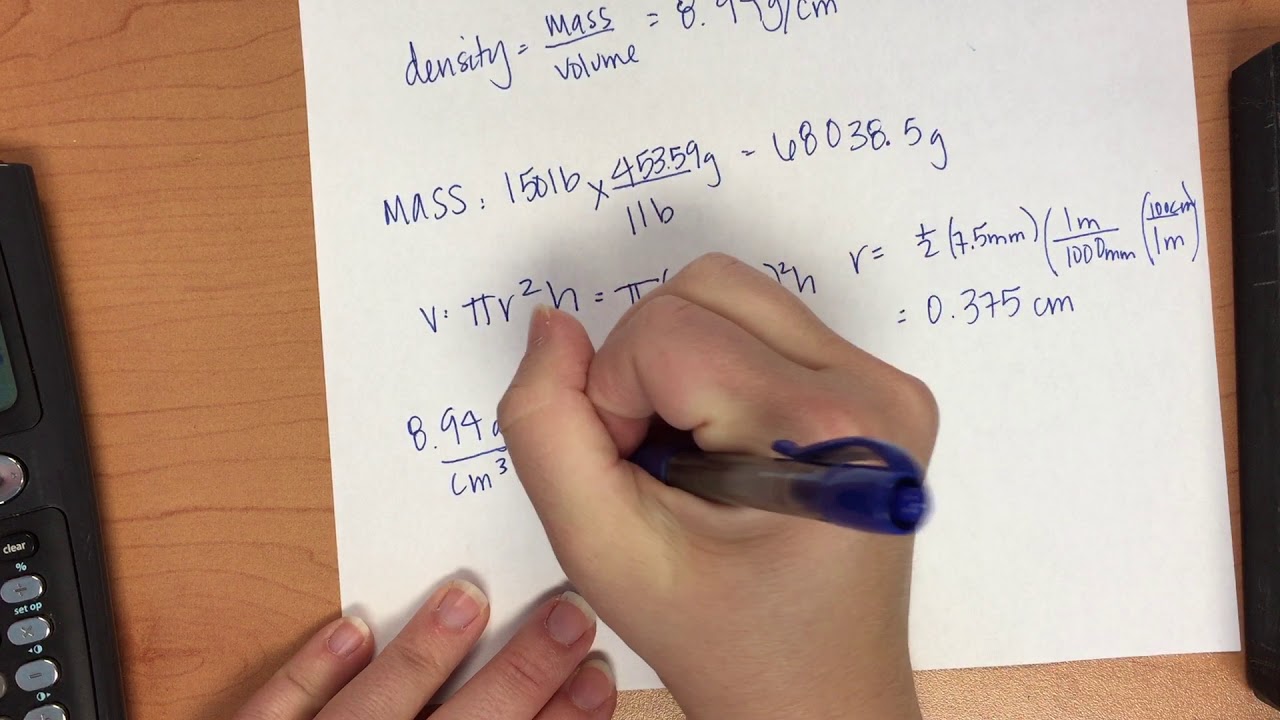 density = mass/volume = 8.94g/cm
MASS: 150lb x 453.59g/1lb = 68038.5g
r = 1/2 (7.5mm) (1m/1000mm (100cm/1m)
= 0.375 cm
V: πr²h = π( )²h
8.94
cm³
clear
%
+
set op
×
−